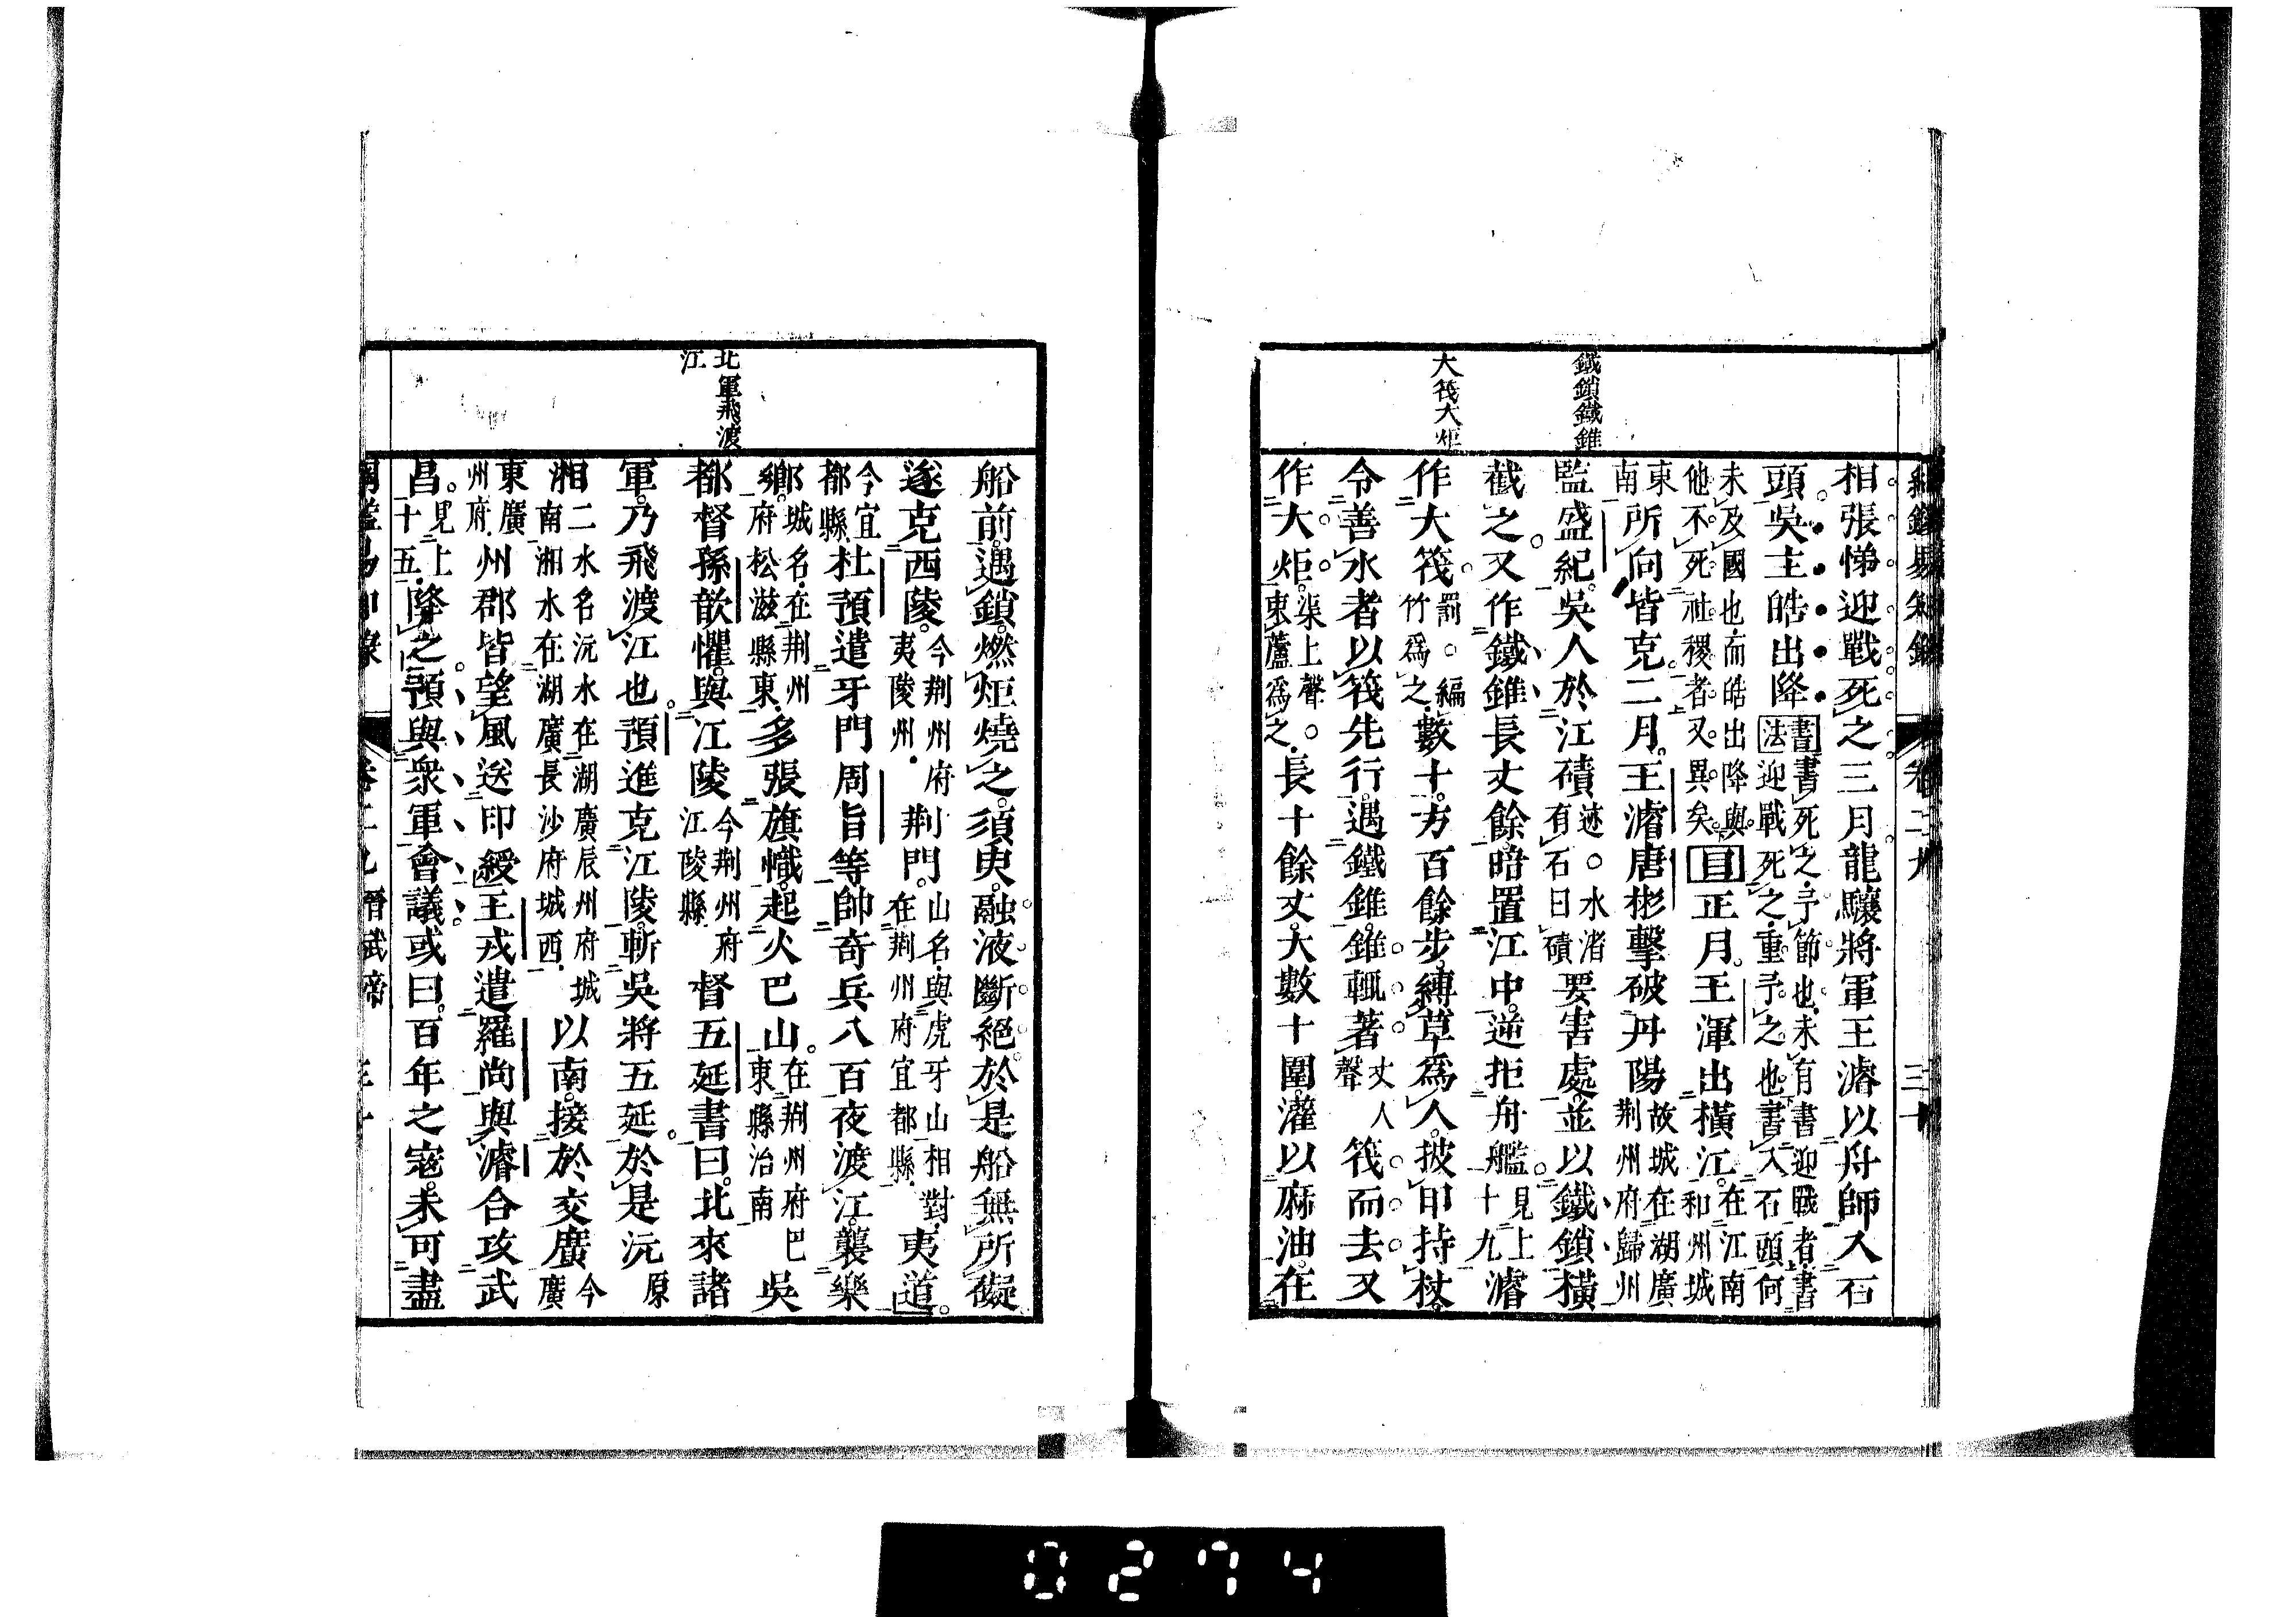 鐵鎖鐵錐
大筏大炬
相張悌迎戰死之三月龍驤將軍王濬以舟師入石
頭吳主皓出降書法書死之予節也未有書迎戰者書迎戰死之重予之也書入石頭何
未及國也而皓出降與他不死社稷者又異矣目正月王渾出橫江在江南和州城
東南所向皆克二月王濬唐彬擊破丹陽故城在湖廣荆州府歸州
監盛紀吳人於江磧迹水渚有石曰磧要害處並以鐵鎖橫
截之又作鐵錐長丈餘暗置江中逆拒舟艦見上十九濬
作大筏罰編竹爲之數十方百餘步縛草爲人披甲持杖
令善水者以筏先行遇鐵錐錐輒著丈人聲筏而去又
作大炬渠上聲東蘆爲之長十餘丈大數十圍灌以麻油在
北軍飛渡江
船前遇鎖燃炬燒之須臾融液斷絕於是船無所礙
遂克西陵今荆州府夷陵州荆門山名與虎牙山相對在荆州府宜都縣夷道
今宜都縣杜預遣牙門周旨等帥奇兵八百夜渡江襲樂
鄉城名在荆州府松滋縣東多張旗幟起火巴山在荆州府巴東縣治南吳
都督孫歆懼與江陵今荆州府江陵縣督五延書曰北來諸
軍乃飛渡江也預進克江陵斬吳將五延於是沅原
湘二水名沅水在湖廣辰州府城南湘水在湖廣長沙府城西以南接於交廣今廣
東廣州府州郡皆望風送印綬王戎遣羅尚與濬合攻武
昌見上十五降之預與衆軍會議或曰百年之寇未可盡